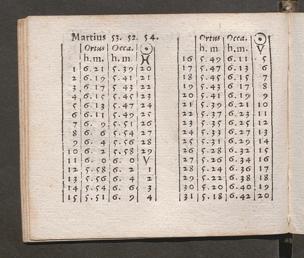 Martius 53. 52. 54.
Ortus Occa. ☉
h. m. h. m. ♓
1 6.21 5.39 20
2 6.19 5.41 21
3 6.17 5.43 22
4 6.15 5.45 23
5 6.13 5.47 24
6 6.11 5.49 25
7 6. 9 5.51 26
8 6. 6 5.54 27
9 6. 4 5.56 28
10 6. 2 5.58 29
11 6. 0 6. 0 V
12 5.58 6. 2 1
13 5.56 6. 4 2
14 5.54 6. 6 3
15 5.51 6. 9 4
Ortus Occa. ☉
h. m. h. m. V
16 5.49 6.11 5
17 5.47 6.13 6
18 5.45 6.15 7
19 5.43 6.17 8
20 5.41 6.19 9
21 5.39 6.21 10
22 5.37 6.23 11
23 5.35 6.25 12
24 5.33 6.27 13
25 5.31 6.29 14
26 5.28 6.32 15
27 5.26 6.34 16
28 5.24 6.36 17
29 5.22 6.38 18
30 5.20 6.40 19
31 5.18 6.42 20